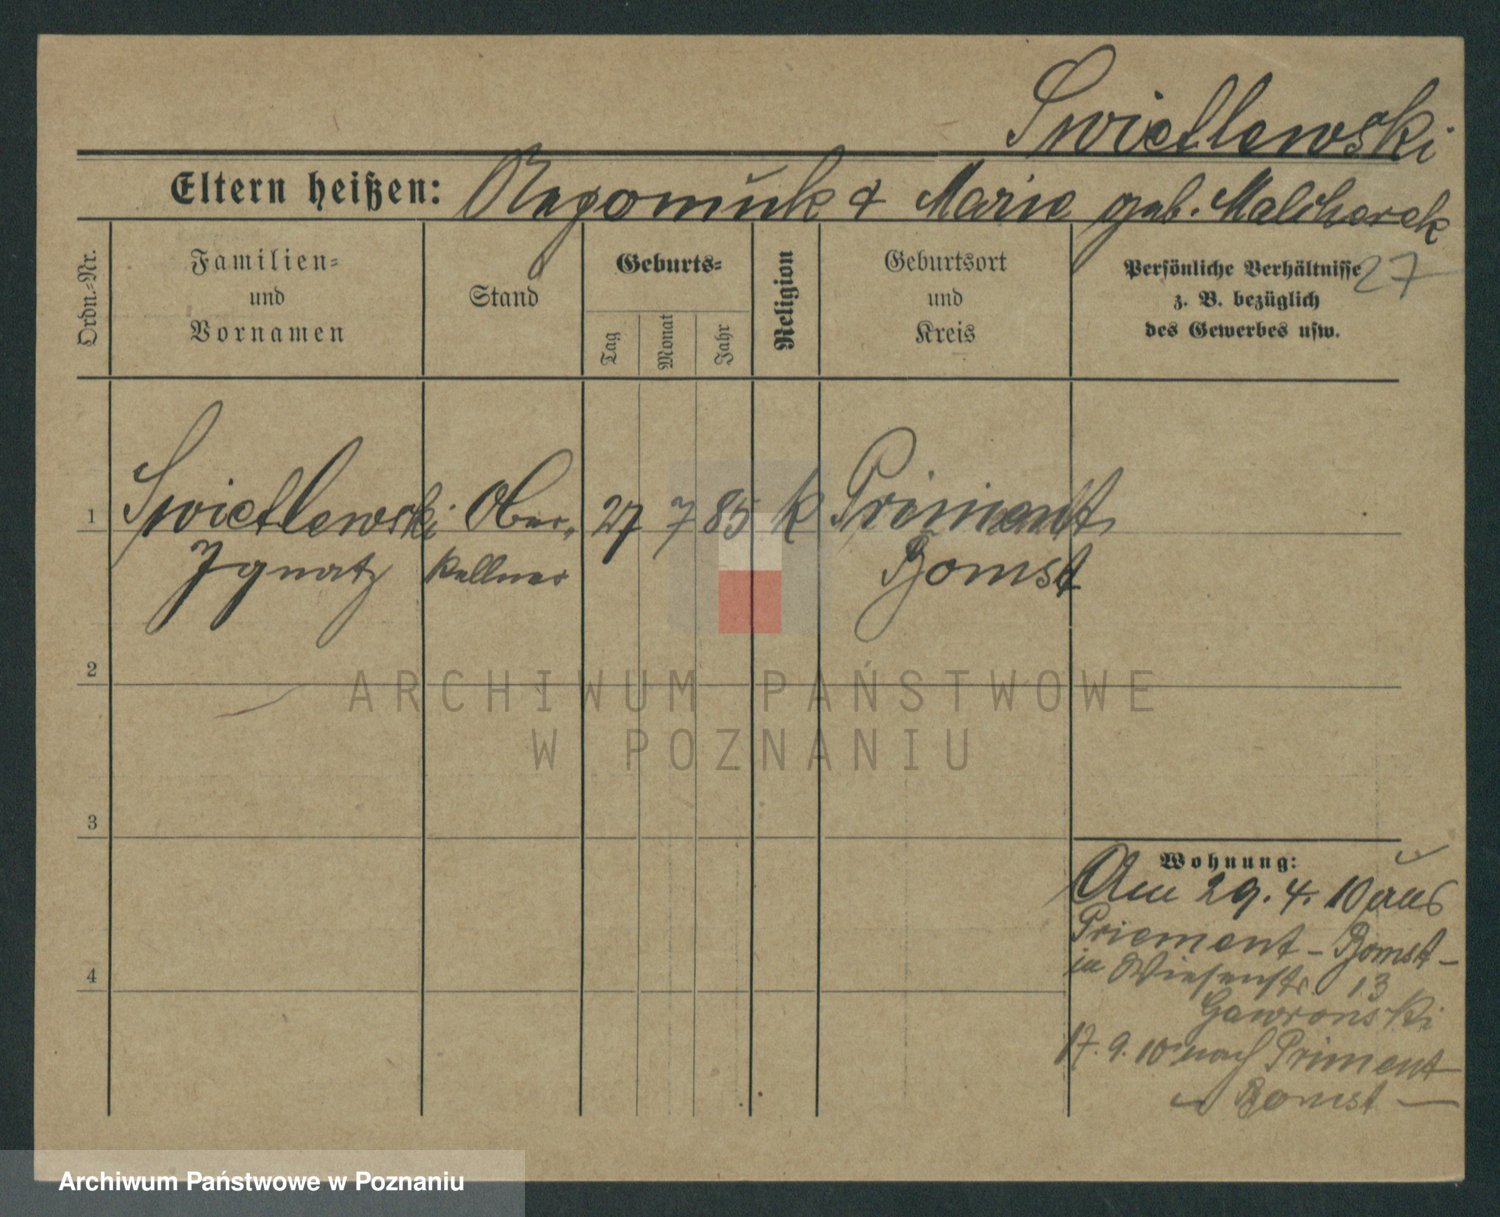 Swietlewski
Eltern heißen: Nepomuk & Marie geb. Malcherek
Ordn.-Nr.
Familien-
und
Vornamen
Stand
Geburts-
Tag
Monat
Jahr
Religion
Geburtsort
und
Kreis
Persönliche Verhältnisse
z. B. bezüglich
des Gewerbes usw.
27
1 Swietlewski Ober- 27 7 85 k Priment,
Ignatz kellner Bomst
2
3
4
Wohnung:
Am 29. 4. 10 aus
Priement - Bomst -
in Wiesenstr. 13
Gawronski
17. 9. 10 nach Priment
- Bomst -
ARCHIWUM PAŃSTWOWE
W POZNANIU
Archiwum Państwowe w Poznaniu